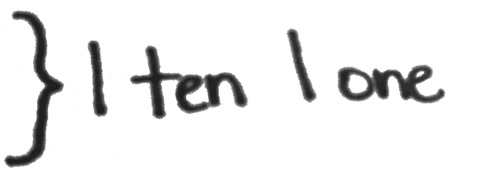 } 1 ten 1 one